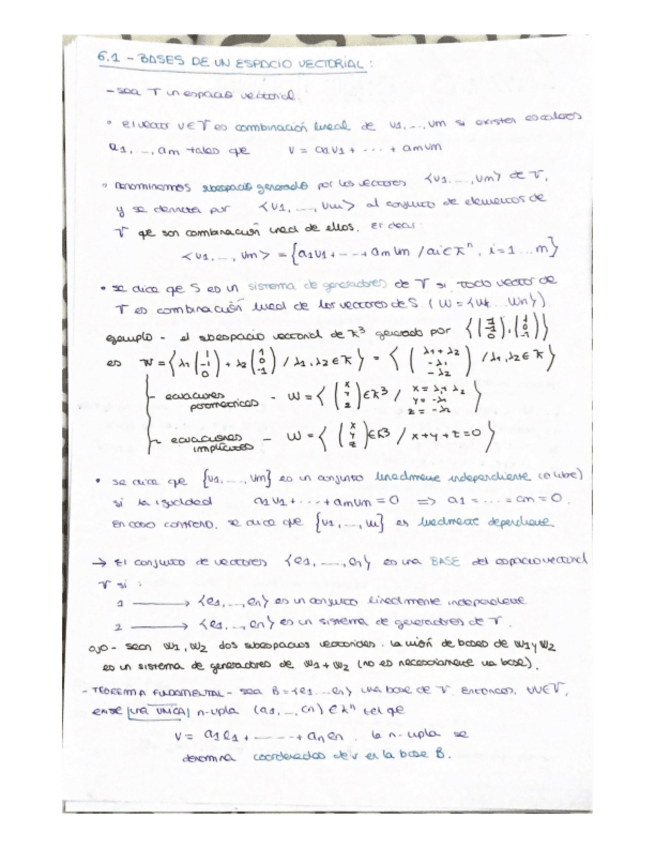 6.1 - BASES DE UN ESPACIO VECTORIAL:
- sea V un espacio vectorial
• el vector v ∈ V es combinación lineal de v1, ..., vm si existen escalares
a1, ..., am tales que v = a1v1 + ... + amvm
• Denominamos subespacio generado por los vectores {v1, ..., vm} de V,
y se denota por <v1, ..., vm> al conjunto de elementos de
V que son combinación lineal de ellos. Es decir:
<v1, ..., vm> = {a1v1 + ... + amvm / ai ∈ K^n, i=1...m}
• se dice que S es un sistema de generadores de V si todo vector de
V es combinación lineal de los vectores de S (W = {v1 ... vn})
ejemplo - el subespacio vectorial de K³ generado por {(1 -1 0), (1 0 -1)}
es W = {λ1 (1 -1 0) + λ2 (1 0 -1) / λ1, λ2 ∈ K} = {(λ1+λ2 -λ1 -λ2) / λ1, λ2 ∈ K}
- ecuaciones paramétricas - W = {(x y z) ∈ K³ / x = λ1+λ2 y = -λ1 z = -λ2}
- ecuaciones implícitas - W = {(x y z) ∈ K³ / x+y+z=0}
• se dice que {v1, ..., vm} es un conjunto linealmente independiente (o libre)
si la igualdad a1v1 + ... + amvm = 0 => a1 = ... = an = 0.
En caso contrario, se dice que {v1, ..., vn} es linealmente dependiente
→ El conjunto de vectores {e1, ..., en} es una BASE del espacio vectorial
V si:
1 → {e1, ..., en} es un conjunto linealmente independiente
2 → {e1, ..., en} es un sistema de generadores de V.
ojo - sean W1, W2 dos subespacios vectoriales. La unión de bases de W1 y W2
es un sistema de generadores de W1+W2 (no es necesariamente una base).
- TEOREMA FUNDAMENTAL - sea B = {e1 ... en} una base de V. Entonces, ∀v∈V,
existe UNA ÚNICA n-upla (a1, ..., an) ∈ K^n tal que
v = a1e1 + ... + anen. La n-upla se
denomina coordenadas de v en la base B.